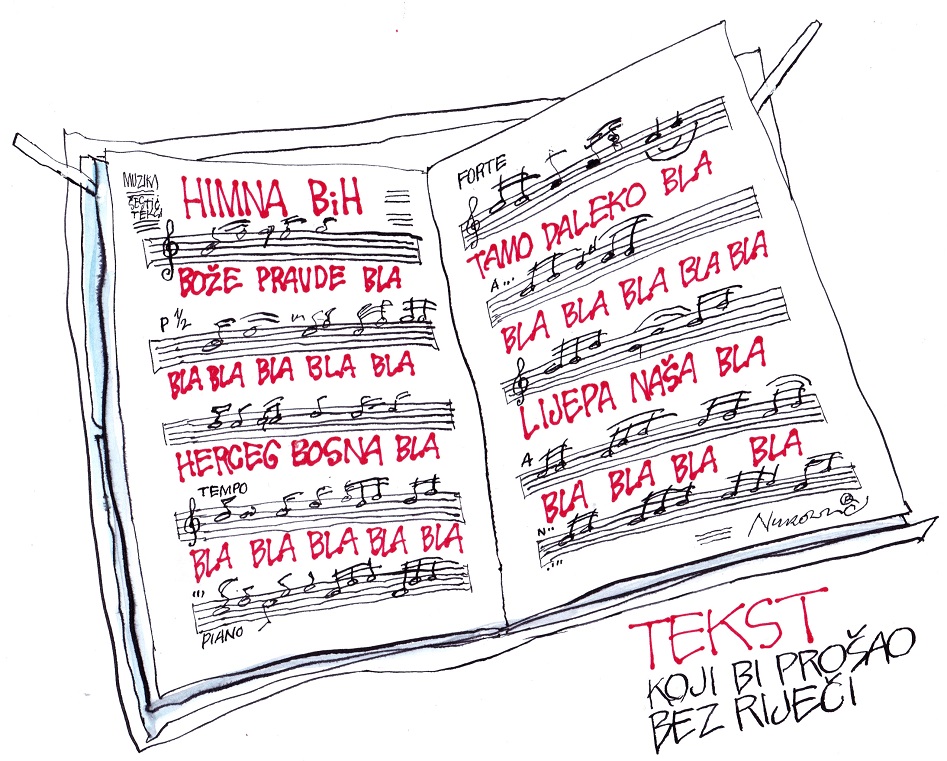 MUZIKA
ŠESTIĆ
TEKST
HIMNA BiH
BOŽE PRAVDE BLA
P 1/2
BLA BLA BLA BLA BLA
HERCEG BOSNA BLA
TEMPO
BLA BLA BLA BLA BLA
PIANO
FORTE
TAMO DALEKO BLA
A
BLA BLA BLA BLA BLA
LIJEPA NAŠA BLA
A
BLA BLA BLA BLA
N
TEKST
KOJI BI PROŠAO
BEZ RIJEČI